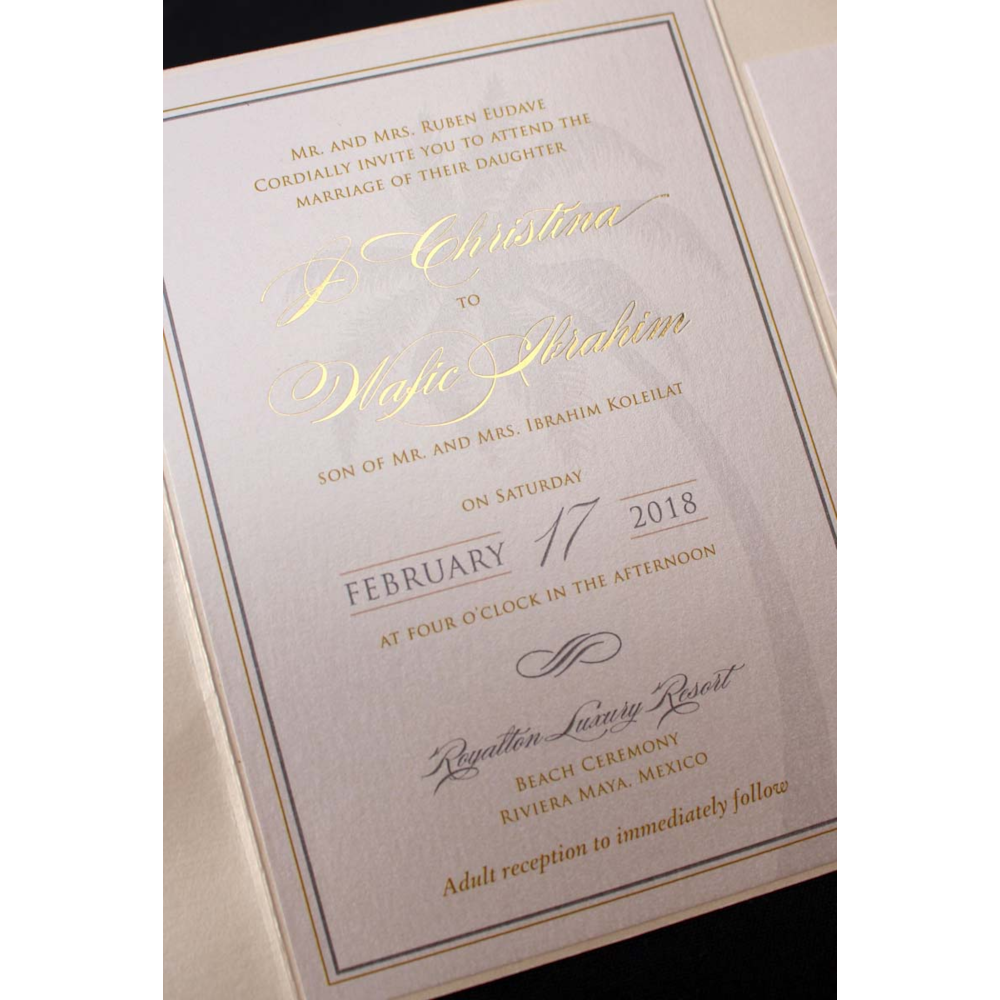 Mr. and Mrs. Ruben Eudave
Cordially invite you to attend the
marriage of their daughter
J Christina
to
Wafic Ibrahim
son of Mr. and Mrs. Ibrahim Koleilat
on Saturday
FEBRUARY 17 2018
at four o'clock in the afternoon
Royalton Luxury Resort
Beach Ceremony
Riviera Maya, Mexico
Adult reception to immediately follow